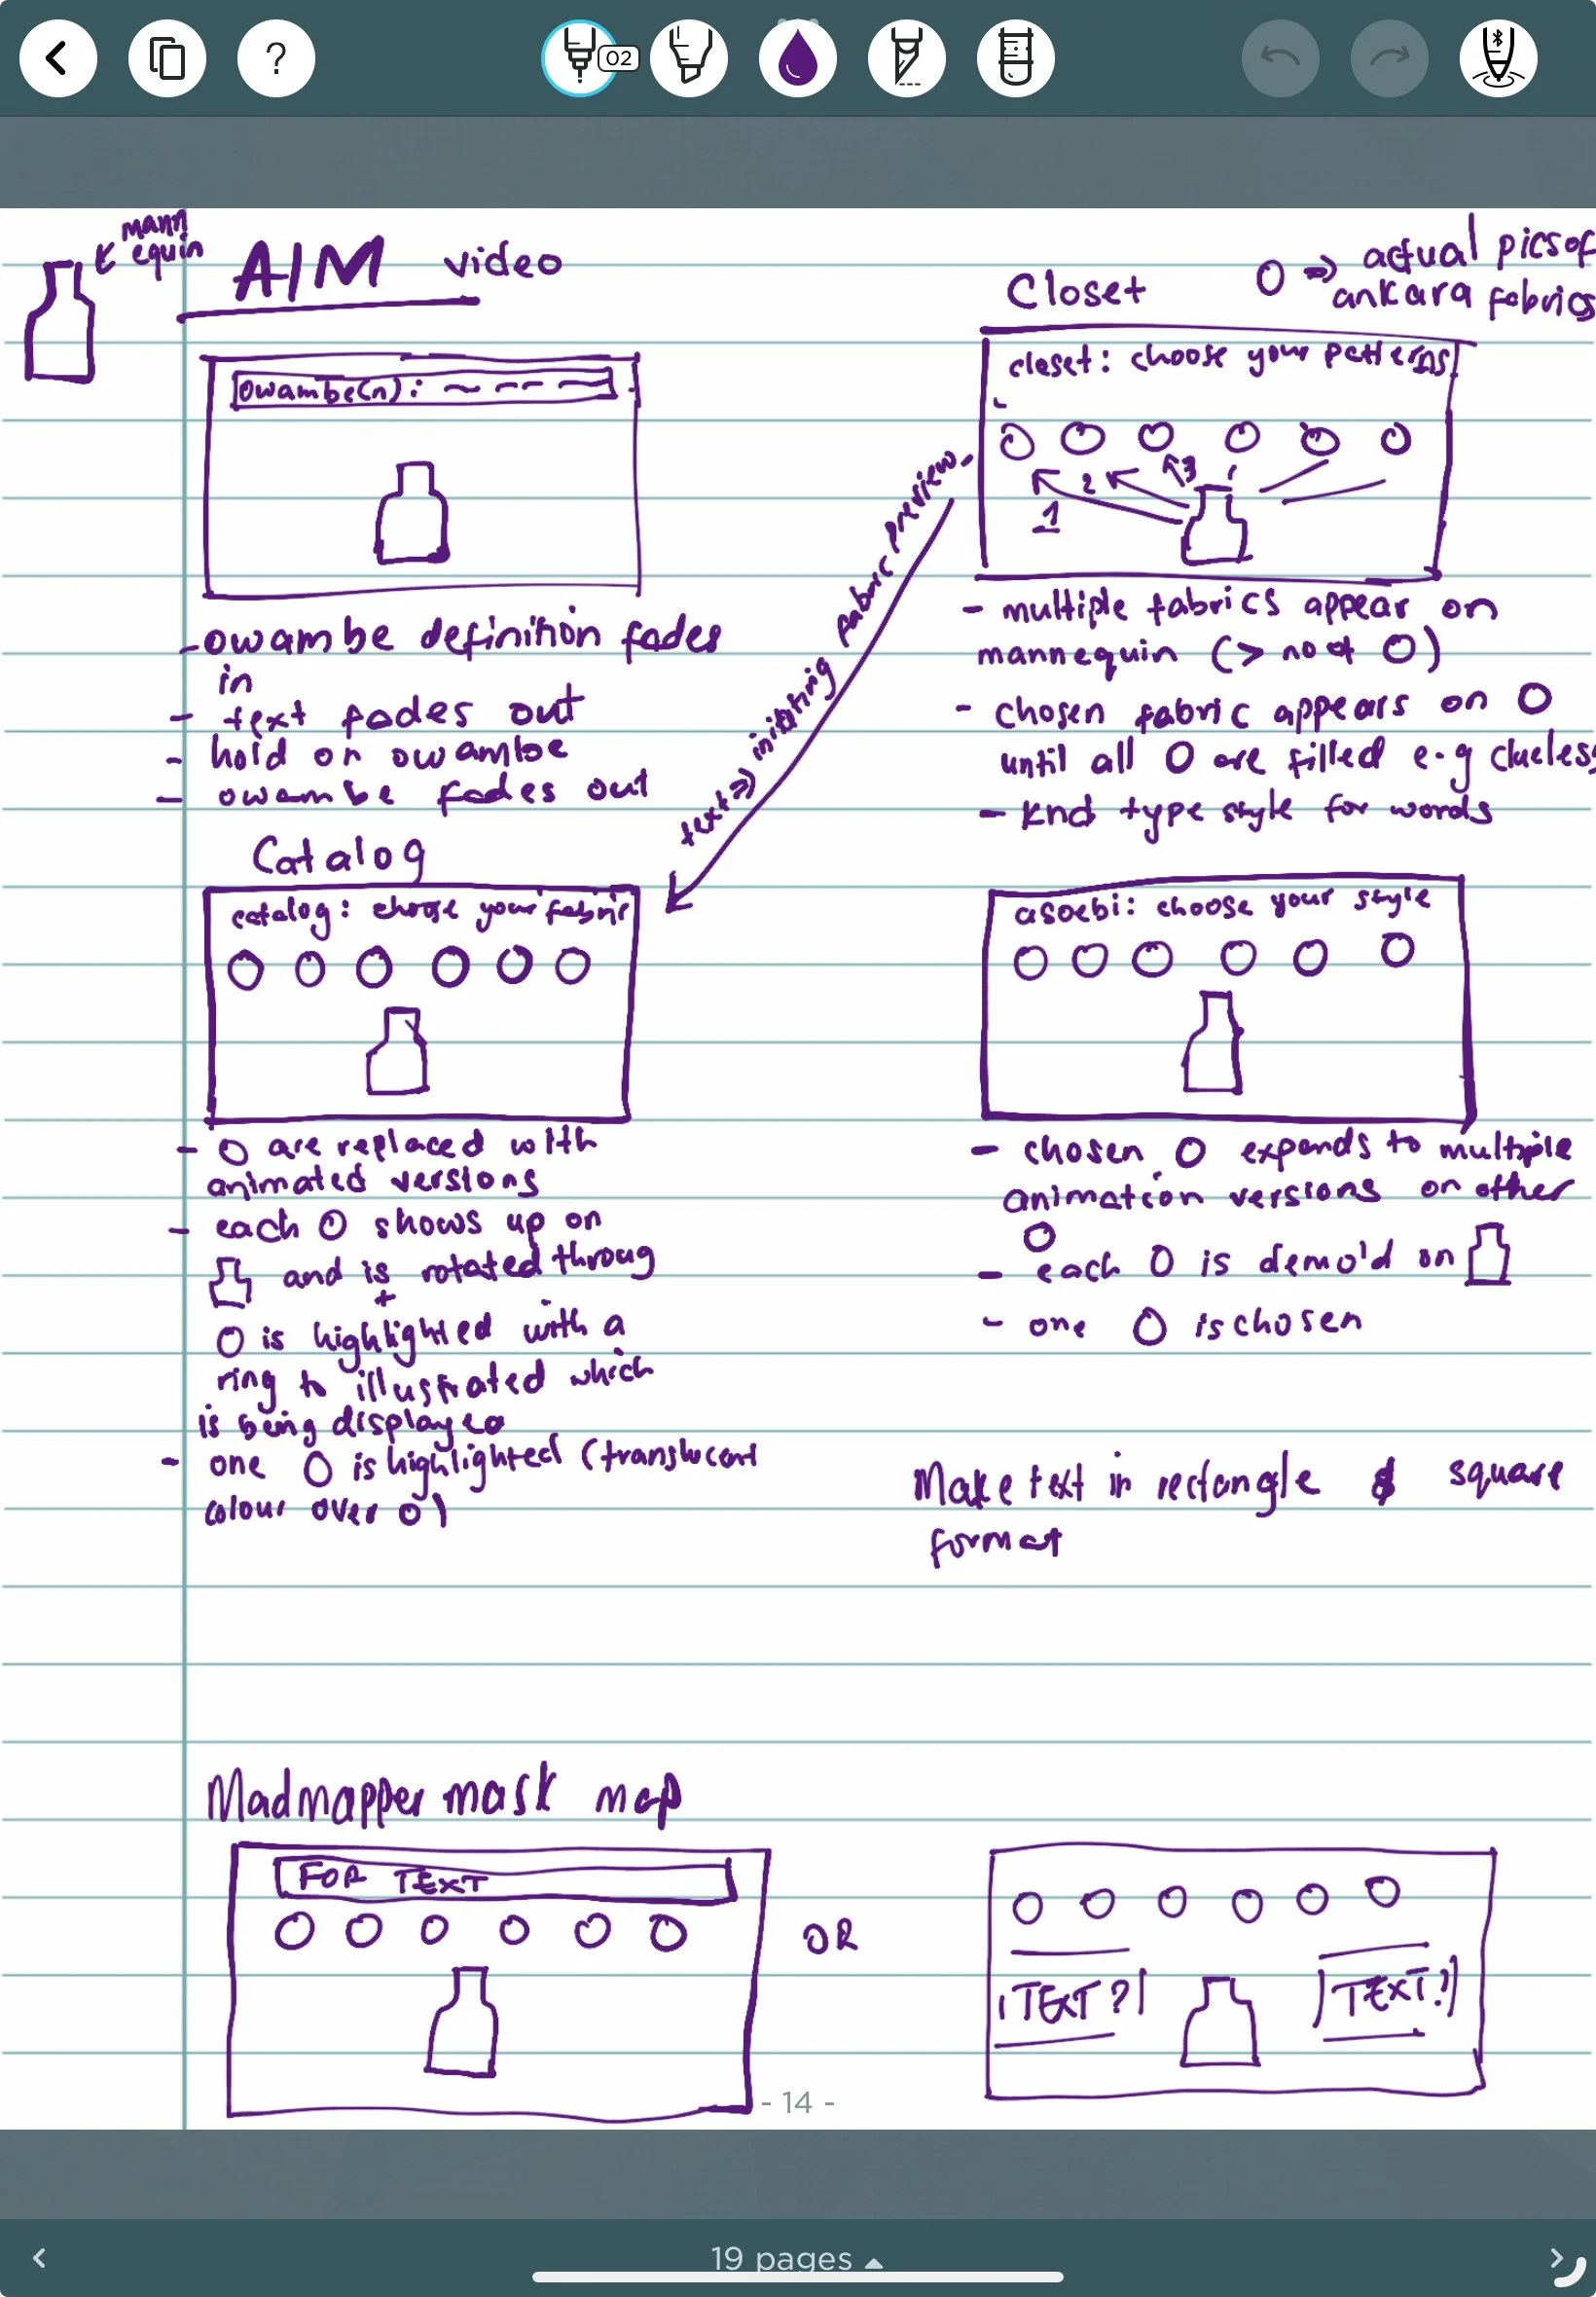 ?
02
mann
equin
A/M video
owambe(n):
- owambe definition fades
in
- text fades out
- hold on owambe
- owambe fades out
Closet
O ⇒ actual pics of
ankara fabrics
closet: choose your patterns
1
2
3
- multiple fabrics appear on
mannequin (> no of O)
- chosen fabric appears on O
until all O are filled e.g clueless
- knd type style for words
text ⇒ initating fabric preview
Catalog
catalog: choose your fabric
- O are replaced with
animated versions
- each O shows up on
and is rotated throug
+
O is highlighted with a
ring to illustrated which
is being displayed
- one O is highlighted (translucent
colour over O)
asoebi: choose your style
- chosen O expands to multiple
animation versions on other
O
- each O is demo'd on
- one O is chosen
Make text in rectangle & square
format
Madmapper mask map
FOR TEXT
OR
TEXT?
TEXT?
- 14 -
19 pages